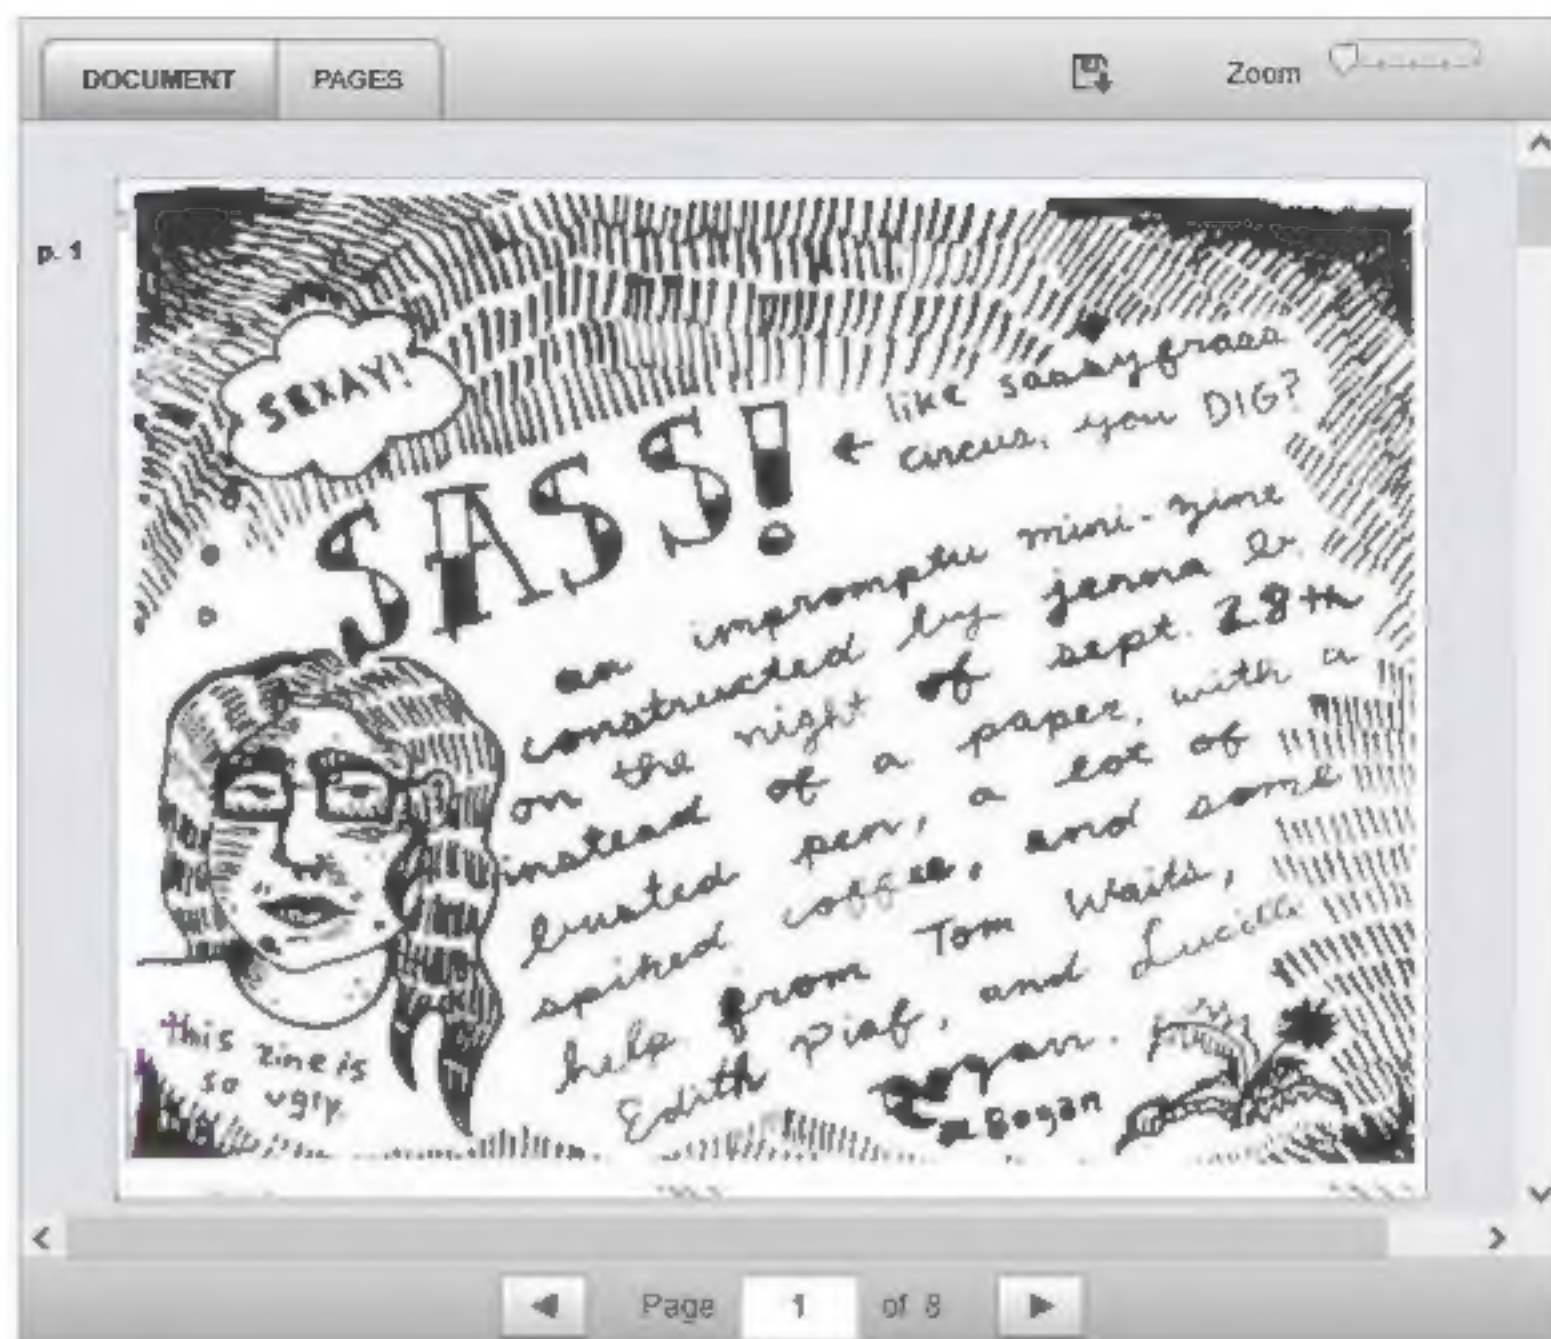 DOCUMENT PAGES Zoom
p. 1
SEXAY!
SASS!
like sassyfrass
circus, you DIG?
an impromptu mini-zine
constructed by jenna b.
on the night of sept. 28th
instead of a paper, with a
busted pen, a lot of
spiked coffee, and some
help from Tom Waits,
Edith Piaf, and Lucille
Bogan
this zine is
so ugly.
Page 1 of 8